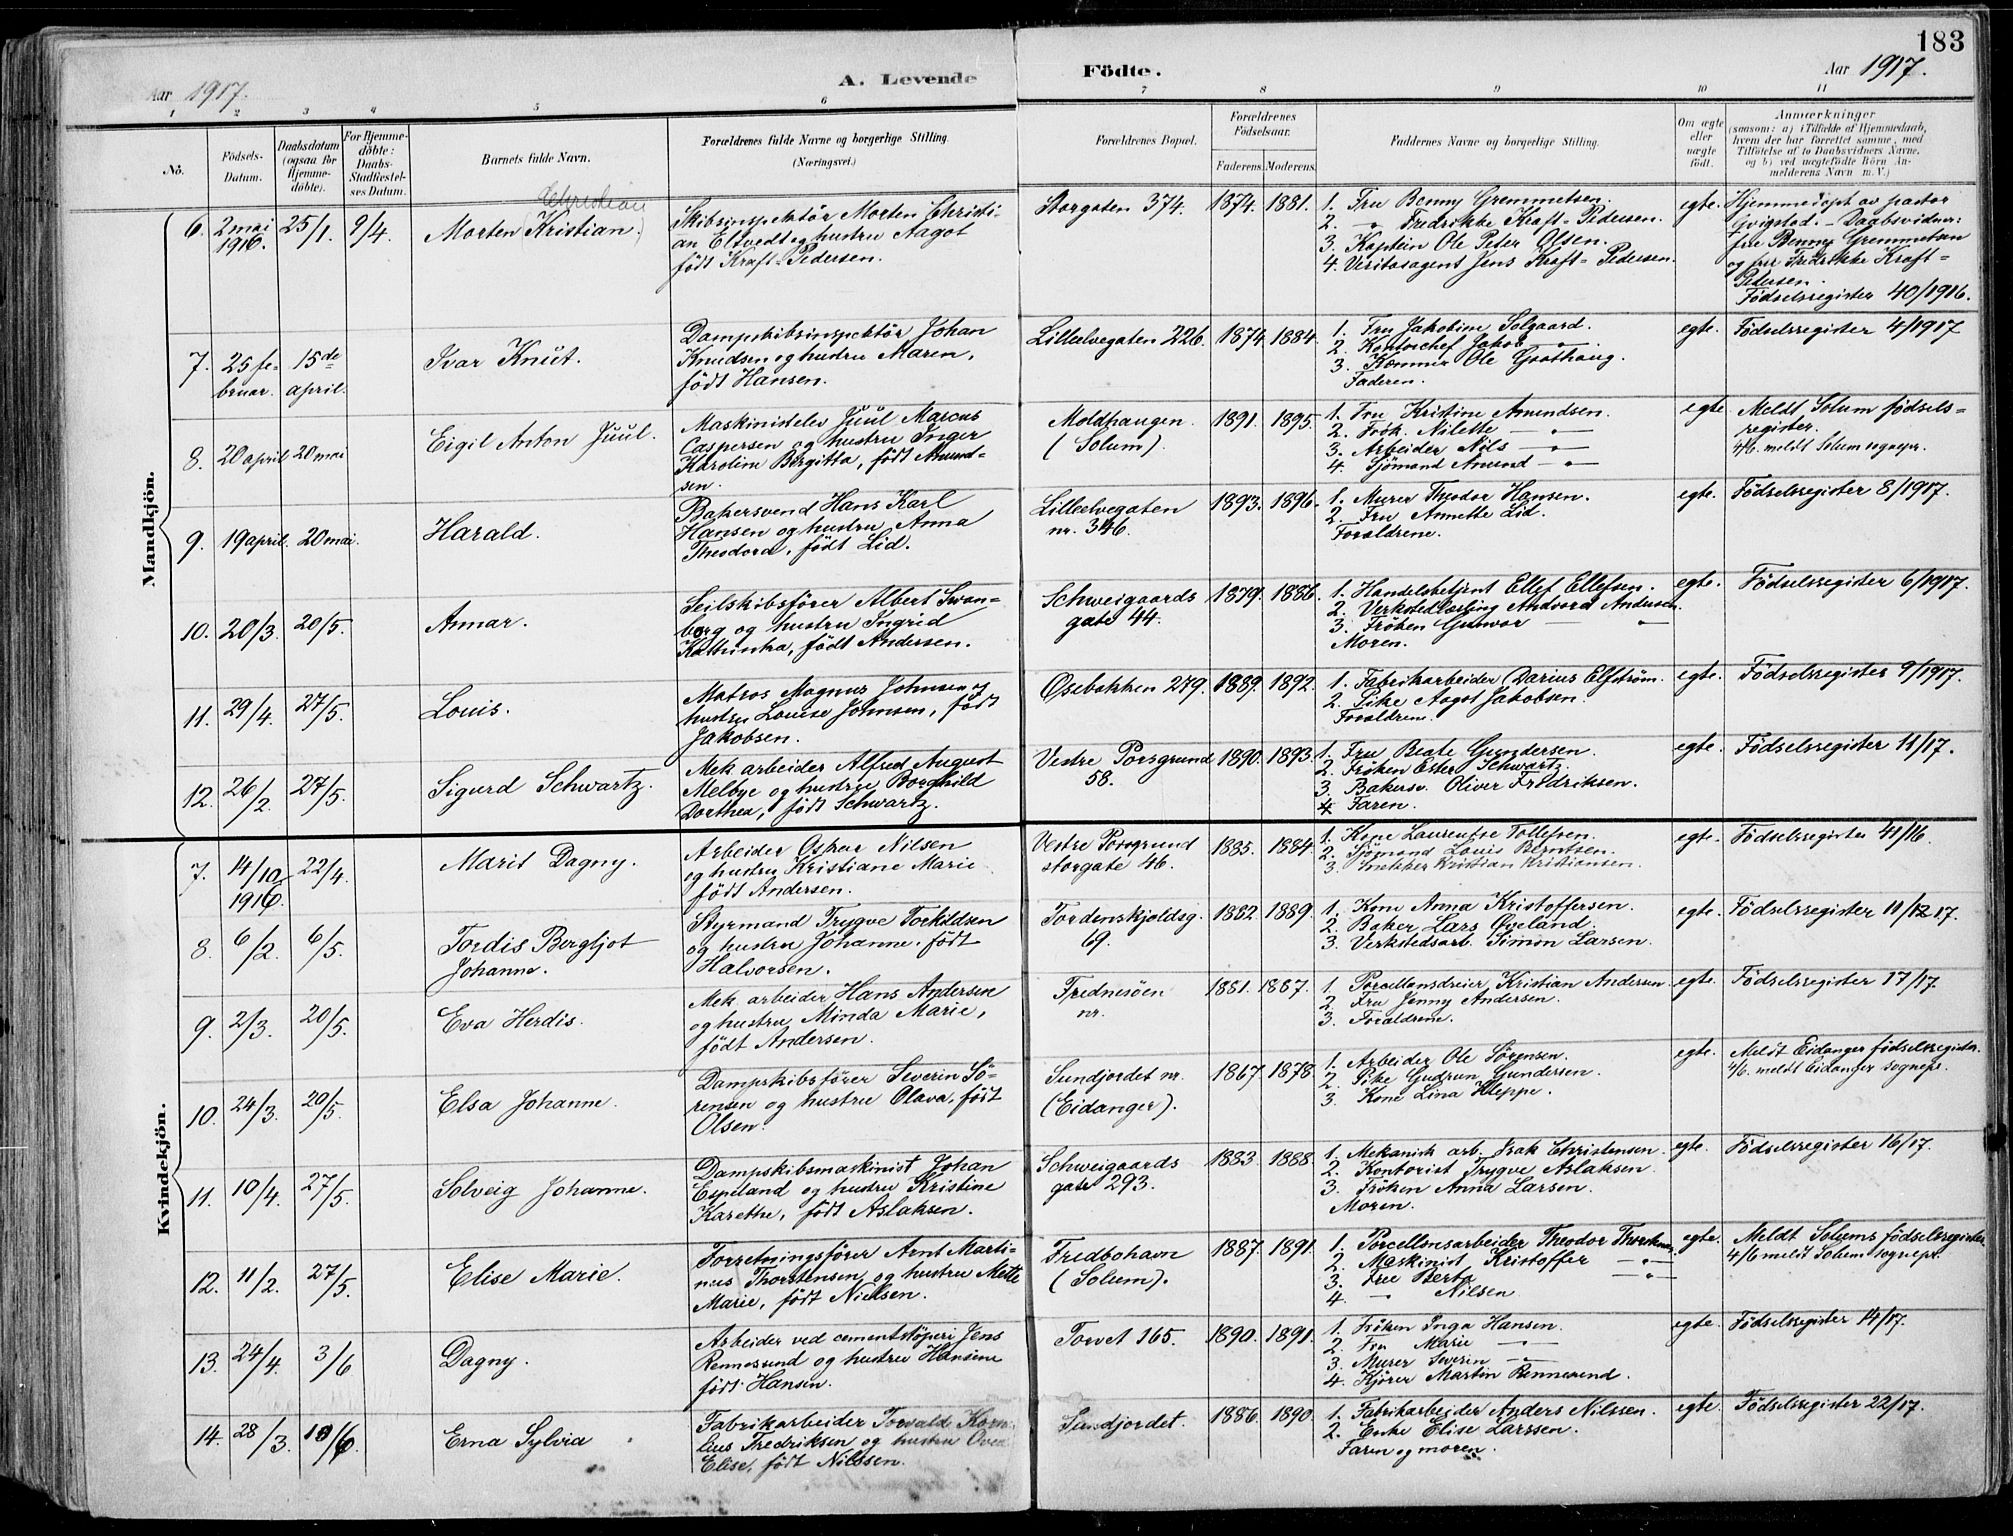 183
Aar 1917.
A. Levende
Födte.
Aar 1917.
1 2 3 4 5 6 7 8 9 10 11
No.
Födsels-
Datum.
Daabsdatum
(ogsaa for
Hjemme-
döbte).
For Hjemme-
döbte:
Daabs-
Stadfæstel-
ses Datum.
Barnets fulde Navn.
Forældrenes fulde Navne og borgerlige Stilling.
(Næringsvei.)
Forældrenes Bopæl.
Forældrenes
Födselsaar.
Faderens. Moderens.
Faddernes Navne og borgerlige Stilling.
Om ægte
eller
uægte
födt.
Anmærkninger
(saasom: a) i Tilfælde af Hjemmedaab,
hvem der har forrettet samme, med
Tilföielse af to Daabsvidners Navne,
og b) ved uægtefödte Börn An-
melderens Navn m. V.)
Mandkjön.
6. 2 mai
1916.
25/1.
9/4.
Christian
Morten (Kristian.)
Skibsinspektör Morten Christi-
an Eltvedt og hustru Aagot
født Kraft-Pedersen.
Storgaten 374.
1874.
1881.
1. Fru Benny Gremmetsen.
2. " Fredrikke Kraft-Pedersen.
3. Kaptein Ole Peter Olsen.
4. Veritasagent Jens Kraft-Pedersen.
egte.
Hjemmedøpt av pastor
Qvigstad. - Daabsvidner:
fru Benny Gremmetsen
og fru Fredrikke Kraft-
Pedersen.
Födselsregister 40/1916.
7. 25 fe-
bruar.
15de
april.
Ivar Knut.
Dampskibsinspektör Johan
Knudsen og hustru Maren,
født Hansen.
Lilleelvegaten 226.
1874.
1884.
1. Fru Jakobine Solgaard.
2. Kontorchef Jakob "
3. Kæmner Ole Goothaug.
Faderen.
egte.
Födselsregister 4/1917
8. 20 april
20 mai
Eigil Anton Juul.
Maskinistelev Juul Marcus
Caspersen og hustru Inger
Karoline Bergitta, født Amund-
sen.
Moldhaugen.
(Solum).
1891.
1895.
1. Fru Kristine Amundsen.
2. Frøk. Nilette — " —
3. Arbeider Nils — " —
4. Sjömand Amund — " —
egte
Meldt Solum fødsels-
register.
4/6. meldt Solum sognepr.
9. 19 april.
20 mai.
Harald.
Bakersvend Hans Karl
Hansen og hustru Anna
Theodora, født Lid.
Lilleelvegaten
nr. 346.
1893.
1896.
1. Murer Theodor Hansen.
2. Fru Annette Lid.
Forældrene.
egte.
Födselsregister 8/1917.
10. 20/3.
20/5.
Annar.
Seilskibsfører Albert Swan-
berg og hustru Ingrid
Kathinka, født Andersen.
Schweigaards
gate 44.
1879.
1886.
1. Handelsbetjent Ellef Ellefsen.
2. Verkstedlærling Andvord Andersen
3. Frøken Gunvor — "
Moren.
egte.
Födselsregister 6/1917.
11. 29/4.
27/5.
Louis.
Matros Magnus Johnsen og
hustru Louise Johnsen, født
Jakobsen.
Osebakken 279.
1889.
1892.
1. Fabrikarbeider Darius Elfström.
2. Pike Aagot Jakobsen.
Forældrene.
egte.
Födselsregister 9/1917.
12. 26/2.
27/5.
Sigurd Schwartz.
Mek. arbeider Alfred August
Melbye og hustru Borghild
Dorthea, født Schwartz.
Vestre Porsgrund
58.
1890.
1893.
1. Fru Beate Gundersen.
2. Frøken Ester Schwartz.
3. Bakersv. Oliver Fredriksen.
4. Faren.
egte.
Födselsregister 11/17.
Kvindekjön.
7. 14/10
1916.
22/4.
Marit Dagny.
Arbeider Oskar Nilsen
og hustru Kristiane Marie
født Andersen.
Vestre Porsgrund
storgate 46.
1885.
1884.
1. Kone Laurentse Tollefsen.
2. Sjömand Louis Berntsen.
3. Snekker Kristian Kristiansen.
egte.
Födselsregister 41/16
8. 6/2.
6/5.
Tordis Bergljot
Johanne.
Styrmand Trygve Torkildsen
og hustru Johanne, født
Halvorsen.
Tordenskjoldsg.
69.
1882.
1889.
1. Kone Anna Kristoffersen.
2. Baker Lars Qveland.
3. Verkstedsarb. Simon Larsen.
egte.
Födselsregister 10/1217.
9. 2/3.
20/5.
Eva Herdis.
Mek. arbeider Hans Andersen
og hustru Minda Marie,
født Andersen.
Frednesöen
nr.
1881.
1887.
1. Porcellansdreier Kristian Andersen.
2. Fru Jenny Andersen.
3. Forældrene.
egte.
Födselsregister 17/17.
10. 24/3.
20/5.
Elsa Johanne.
Dampskibsfører Severin Sö-
rensen og hustru Olava, født
Olsen.
Sundjordet nr.
(Eidanger).
1867
1878
1. Arbeider Ole Sørensen.
2. Pike Gudrun Gundersen.
3. Kone Lina Kleppe.
egte.
Meldt Eidanger fødselsregister.
4/6. meldt Eidanger sognepr.
11. 10/4.
27/5.
Solveig Johanne.
Dampskibsmaskinist Johan
Espeland og hustru Kristine
Karethe, født Aslaksen.
Schweigaards
gate 293.
1883.
1888.
1. Mekanisk arb. Isak Christensen.
2. Kontorist Trygve Aslaksen.
3. Frøken Anna Larsen.
Moren.
egte.
Födselsregister 16/17.
12. 11/2.
27/5.
Elise Marie.
Forretningsfører Arnt Marti-
nus Thorstensen og hustru Mette
Marie, født Nielsen.
Fredbohavn
(Solum).
1887.
1891.
1. Porcellansarbeider Theodor
2. Maskinist Kristoffer — " —
3. Fru Berta — " —
4. " Nilsen.
egte.
Meldt Solums fødselsregister.
4/6 meldt Solum sognepr.
13. 24/4.
3/6
Dagny.
Arbeider ved cementstøperi Jens
Rennesund og hustru Hansine
født Hansen.
Torvet 165.
1890.
1891.
1. Frøken Inga Hansen.
2. Fru Marie — " —
3. Murer Severin — " —
4. Kjører Martin Rennesund.
egte.
Födselsregister 14/17.
14. 28/3.
10/6
Erna Sylvia
Fabrikarbeider Torvald Korne-
lius Fredriksen og hustru
Elise, født Nilssen.
Sundjordet.
1886.
1890.
1. Fabrikarbeider Anders Nilssen.
2. Enke Elise Larssen.
Faren og moren.
egte.
Födselsregister 22/17.